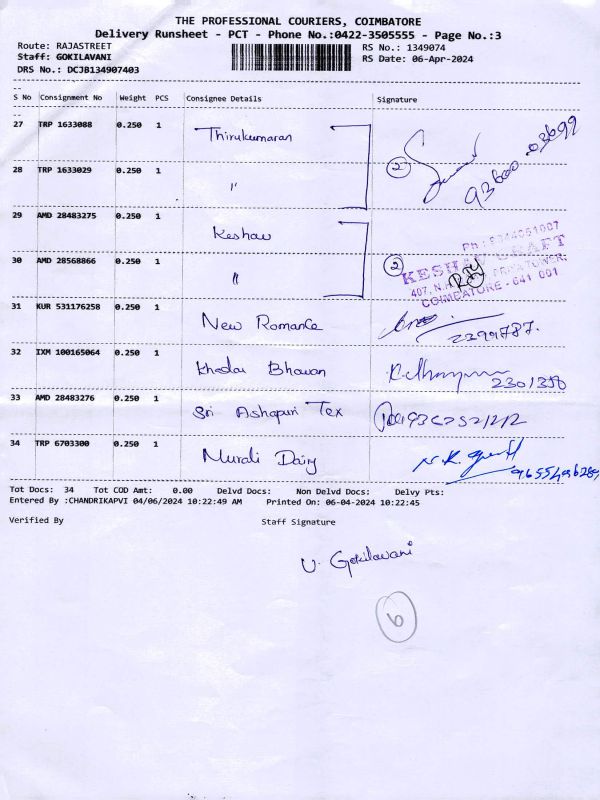 THE PROFESSIONAL COURIERS, COIMBATORE
Delivery Runsheet - PCT - Phone No.:0422-3505555 - Page No.:3
Route: RAJASTREET
RS No.: 1349074
Staff: GOKILAVANI
RS Date: 06-Apr-2024
DRS No.: DCJB134907403
S No Consignment No Weight PCS Consignee Details Signature
27 TRP 1633088 0.250 1 Thirukumaran
28 TRP 1633029 0.250 1 "
2
93600 03699
29 AMD 28483275 0.250 1 Keshav
30 AMD 28568866 0.250 1 "
2
KESHAV CRAFT
COIMBATORE - 641 001
31 KUR 531176258 0.250 1 New Romance
2399787.
32 IXM 100165064 0.250 1 Khadai Bhavan
2301350
33 AMD 28483276 0.250 1 Sri Ashapuri Tex
34 TRP 6703300 0.250 1 Murali Dairy
Tot Docs: 34 Tot COD Amt: 0.00 Delvd Docs: Non Delvd Docs: Delvy Pts:
Entered By :CHANDRIKAPVI 04/06/2024 10:22:49 AM Printed On: 06-04-2024 10:22:45
Verified By Staff Signature
U. Gokilavani
6